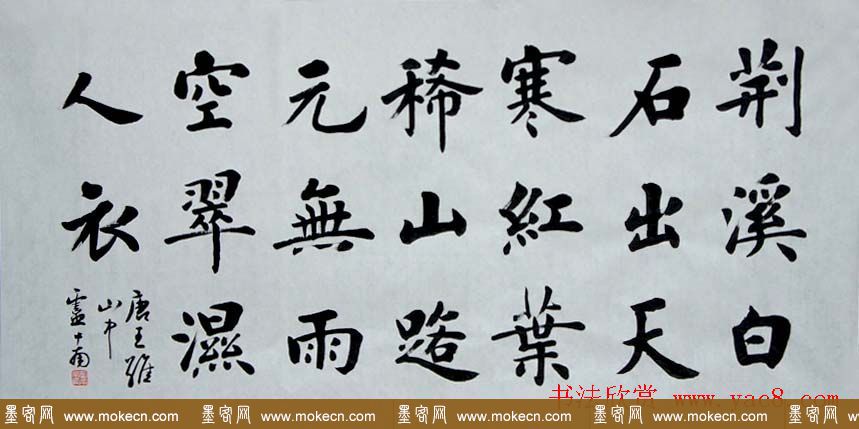 荆溪白
石出天
寒紅葉
稀山路
元無雨
空翠濕
人衣
唐王維
山中
盧中南
书法欣赏 www.yac8.com
墨客网 www.mokecn.com 墨客网 www.mokecn.com 墨客网 www.mokecn.com 墨客网 www.mokecn.com 墨客网